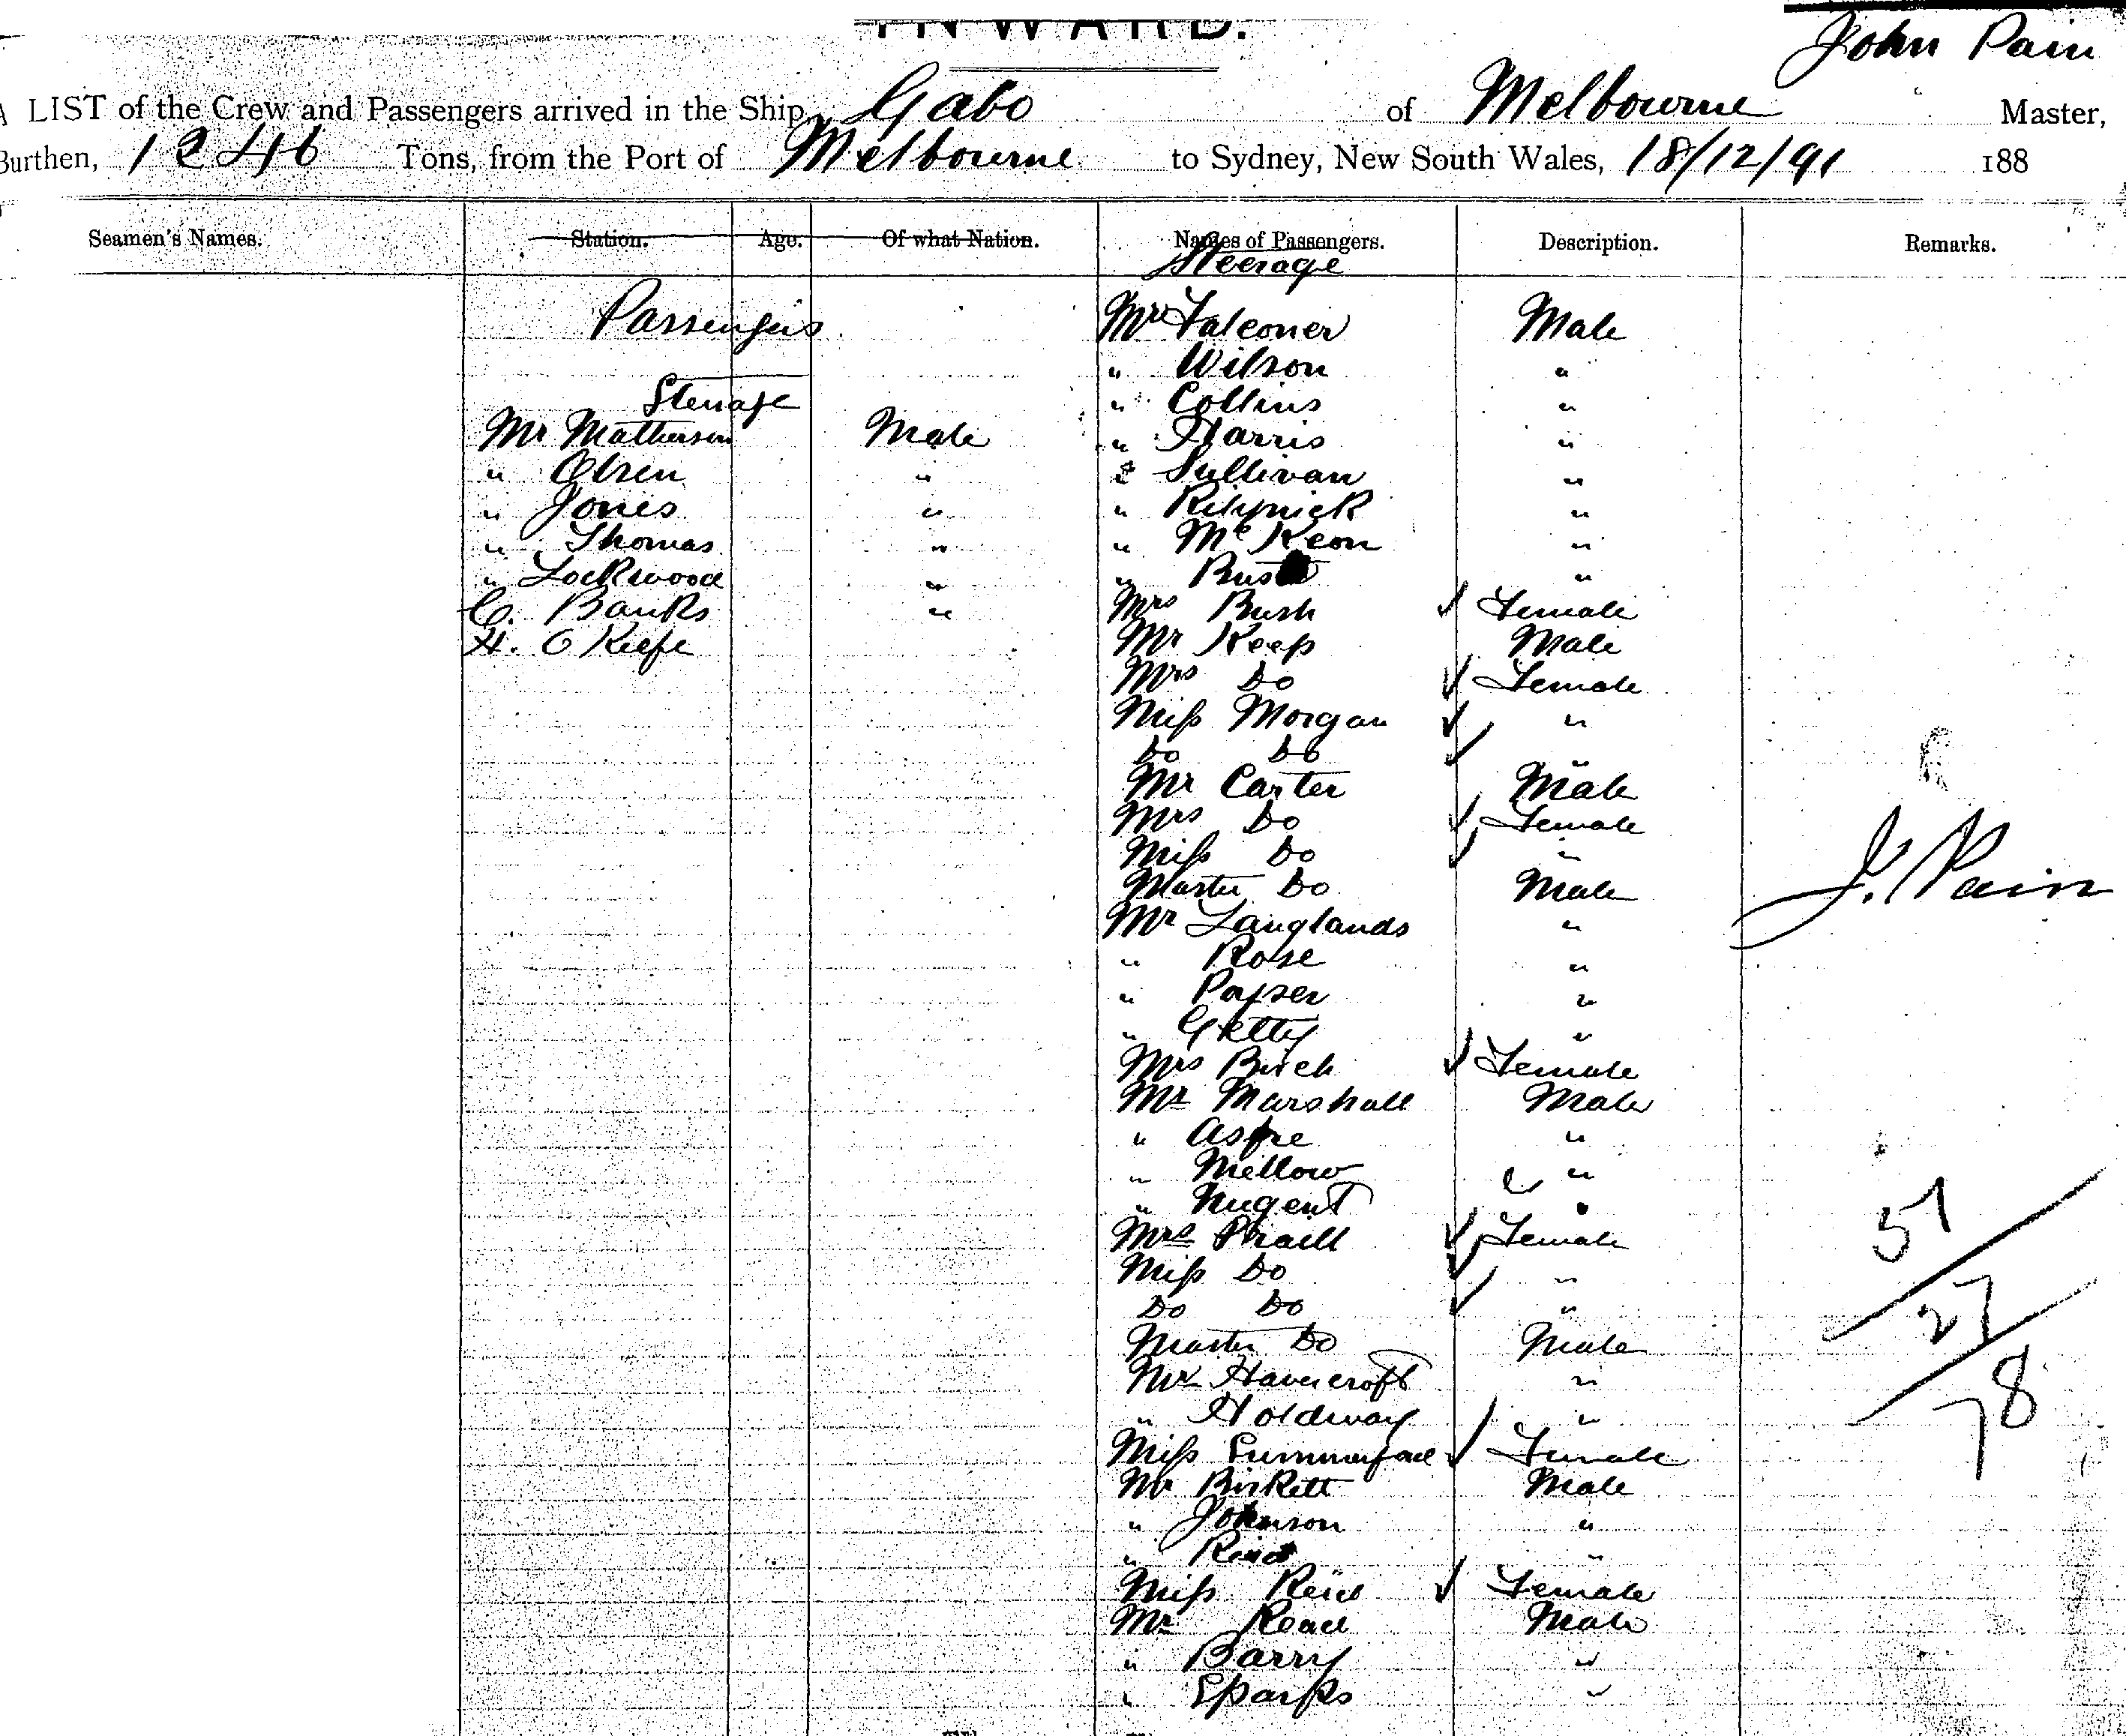 INWARD.
John Pain
A LIST of the Crew and Passengers arrived in the Ship Gabo of Melbourne Master,
Burthen, 1246 Tons, from the Port of Melbourne to Sydney, New South Wales, 18/12/91 188
Seamen's Names. Station. Age. Of what Nation. Names of Passengers. Description. Remarks.
Steerage
Passengers
Steerage
Mr Matherson Male
" Olsen "
" Jones "
" Thomas "
" Lockwood "
C. Banks "
H. O Keefe
Mr Falconer Male
" Wilson "
" Collins "
" Harris "
" Sullivan "
" "
" McKeon "
" Bush "
Mrs Bush Female
Mr Keep Male
Mrs Do Female
Miss Morgan "
Do Do "
Mr Carter Male
Mrs Do Female
Miss Do "
Master Do Male
Mr Langlands "
" Rose "
" "
" Getty "
Mrs Birch Female
Mr Marshall Male
" "
" Mellow "
" Nugent "
Mrs Praill Female
Miss Do "
Do Do "
Master Do Male
Mr Havercroft "
" Holdway "
Miss Female
Mr Birkett Male
" Johnson "
" Read "
Miss Reid Female
Mr Read Male
" Barry "
" Sparks "
J. Pain
51
27
78